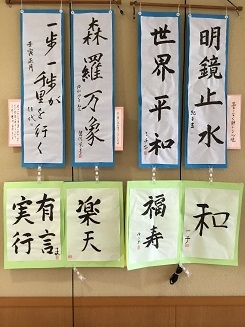 明鏡止水
世界平和
森羅万象
一歩一歩が
千里を行く
壬寅正月
和
福寿
楽天
有言
実行